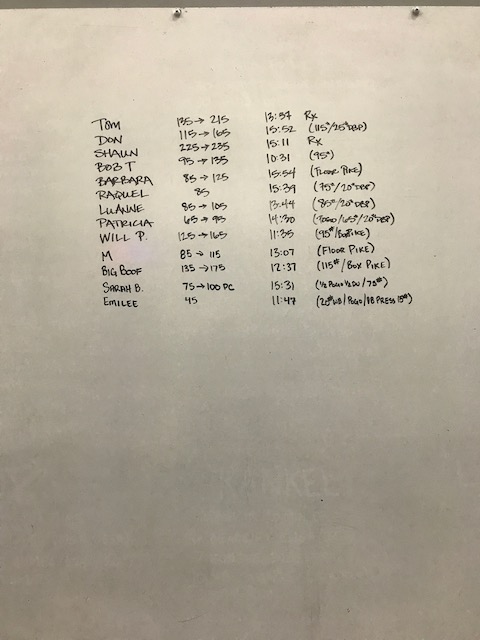 TOM 135→215 13:57 Rx
DON 115→165 15:52 (115#/25#DBP)
SHAUN 225→235 15:11 Rx
BOB T 95→135 10:31 (95#)
BARBARA 85→125 15:54 (FLOOR PIKE)
RAQUEL 85 15:39 (75#/20#DBP)
LUANNE 85→105 13:44 (85#/20#DBP)
PATRICIA 65→95 14:30 (POGO/65#/20#DBP)
WILL P. 125→165 11:35 (95#/BOX PIKE)
M 85→115 13:07 (FLOOR PIKE)
BIG BOOF 135→175 12:37 (115#/BOX PIKE)
SARAH B. 75→100 PC 15:31 (1/2 POGO 1/2 DU/75#)
EMILEE 45 11:47 (25# /POGO/ PRESS 15#)